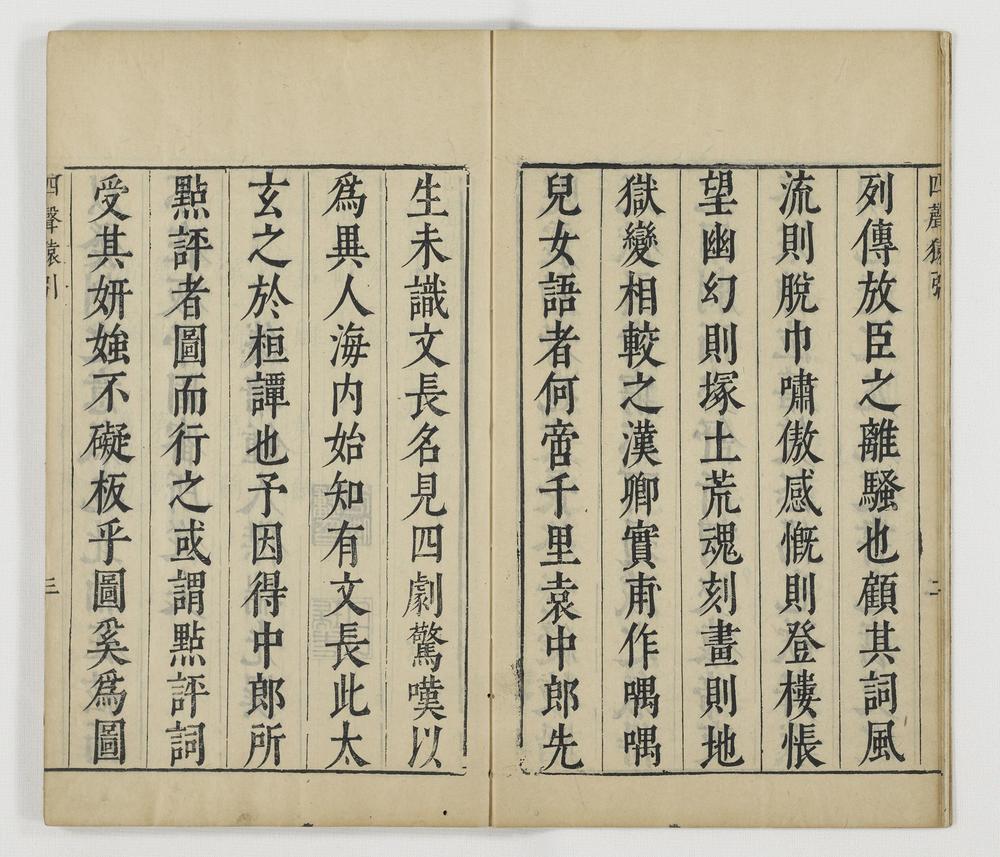 四聲猿引
二
列傳放臣之離騷也顧其詞風
流則脫巾嘯傲感慨則登樓悵
望幽幻則塚土荒魂刻畫則地
獄變相較之漢卿實甫作喁喁
兒女語者何啻千里袁中郎先
生未識文長名見四劇驚嘆以
為異人海內始知有文長此太
玄之於桓譚也予因得中郎所
點評者圖而行之或謂點評詞
受其妍媸不礙板乎圖奚為圖
四聲猿引
三